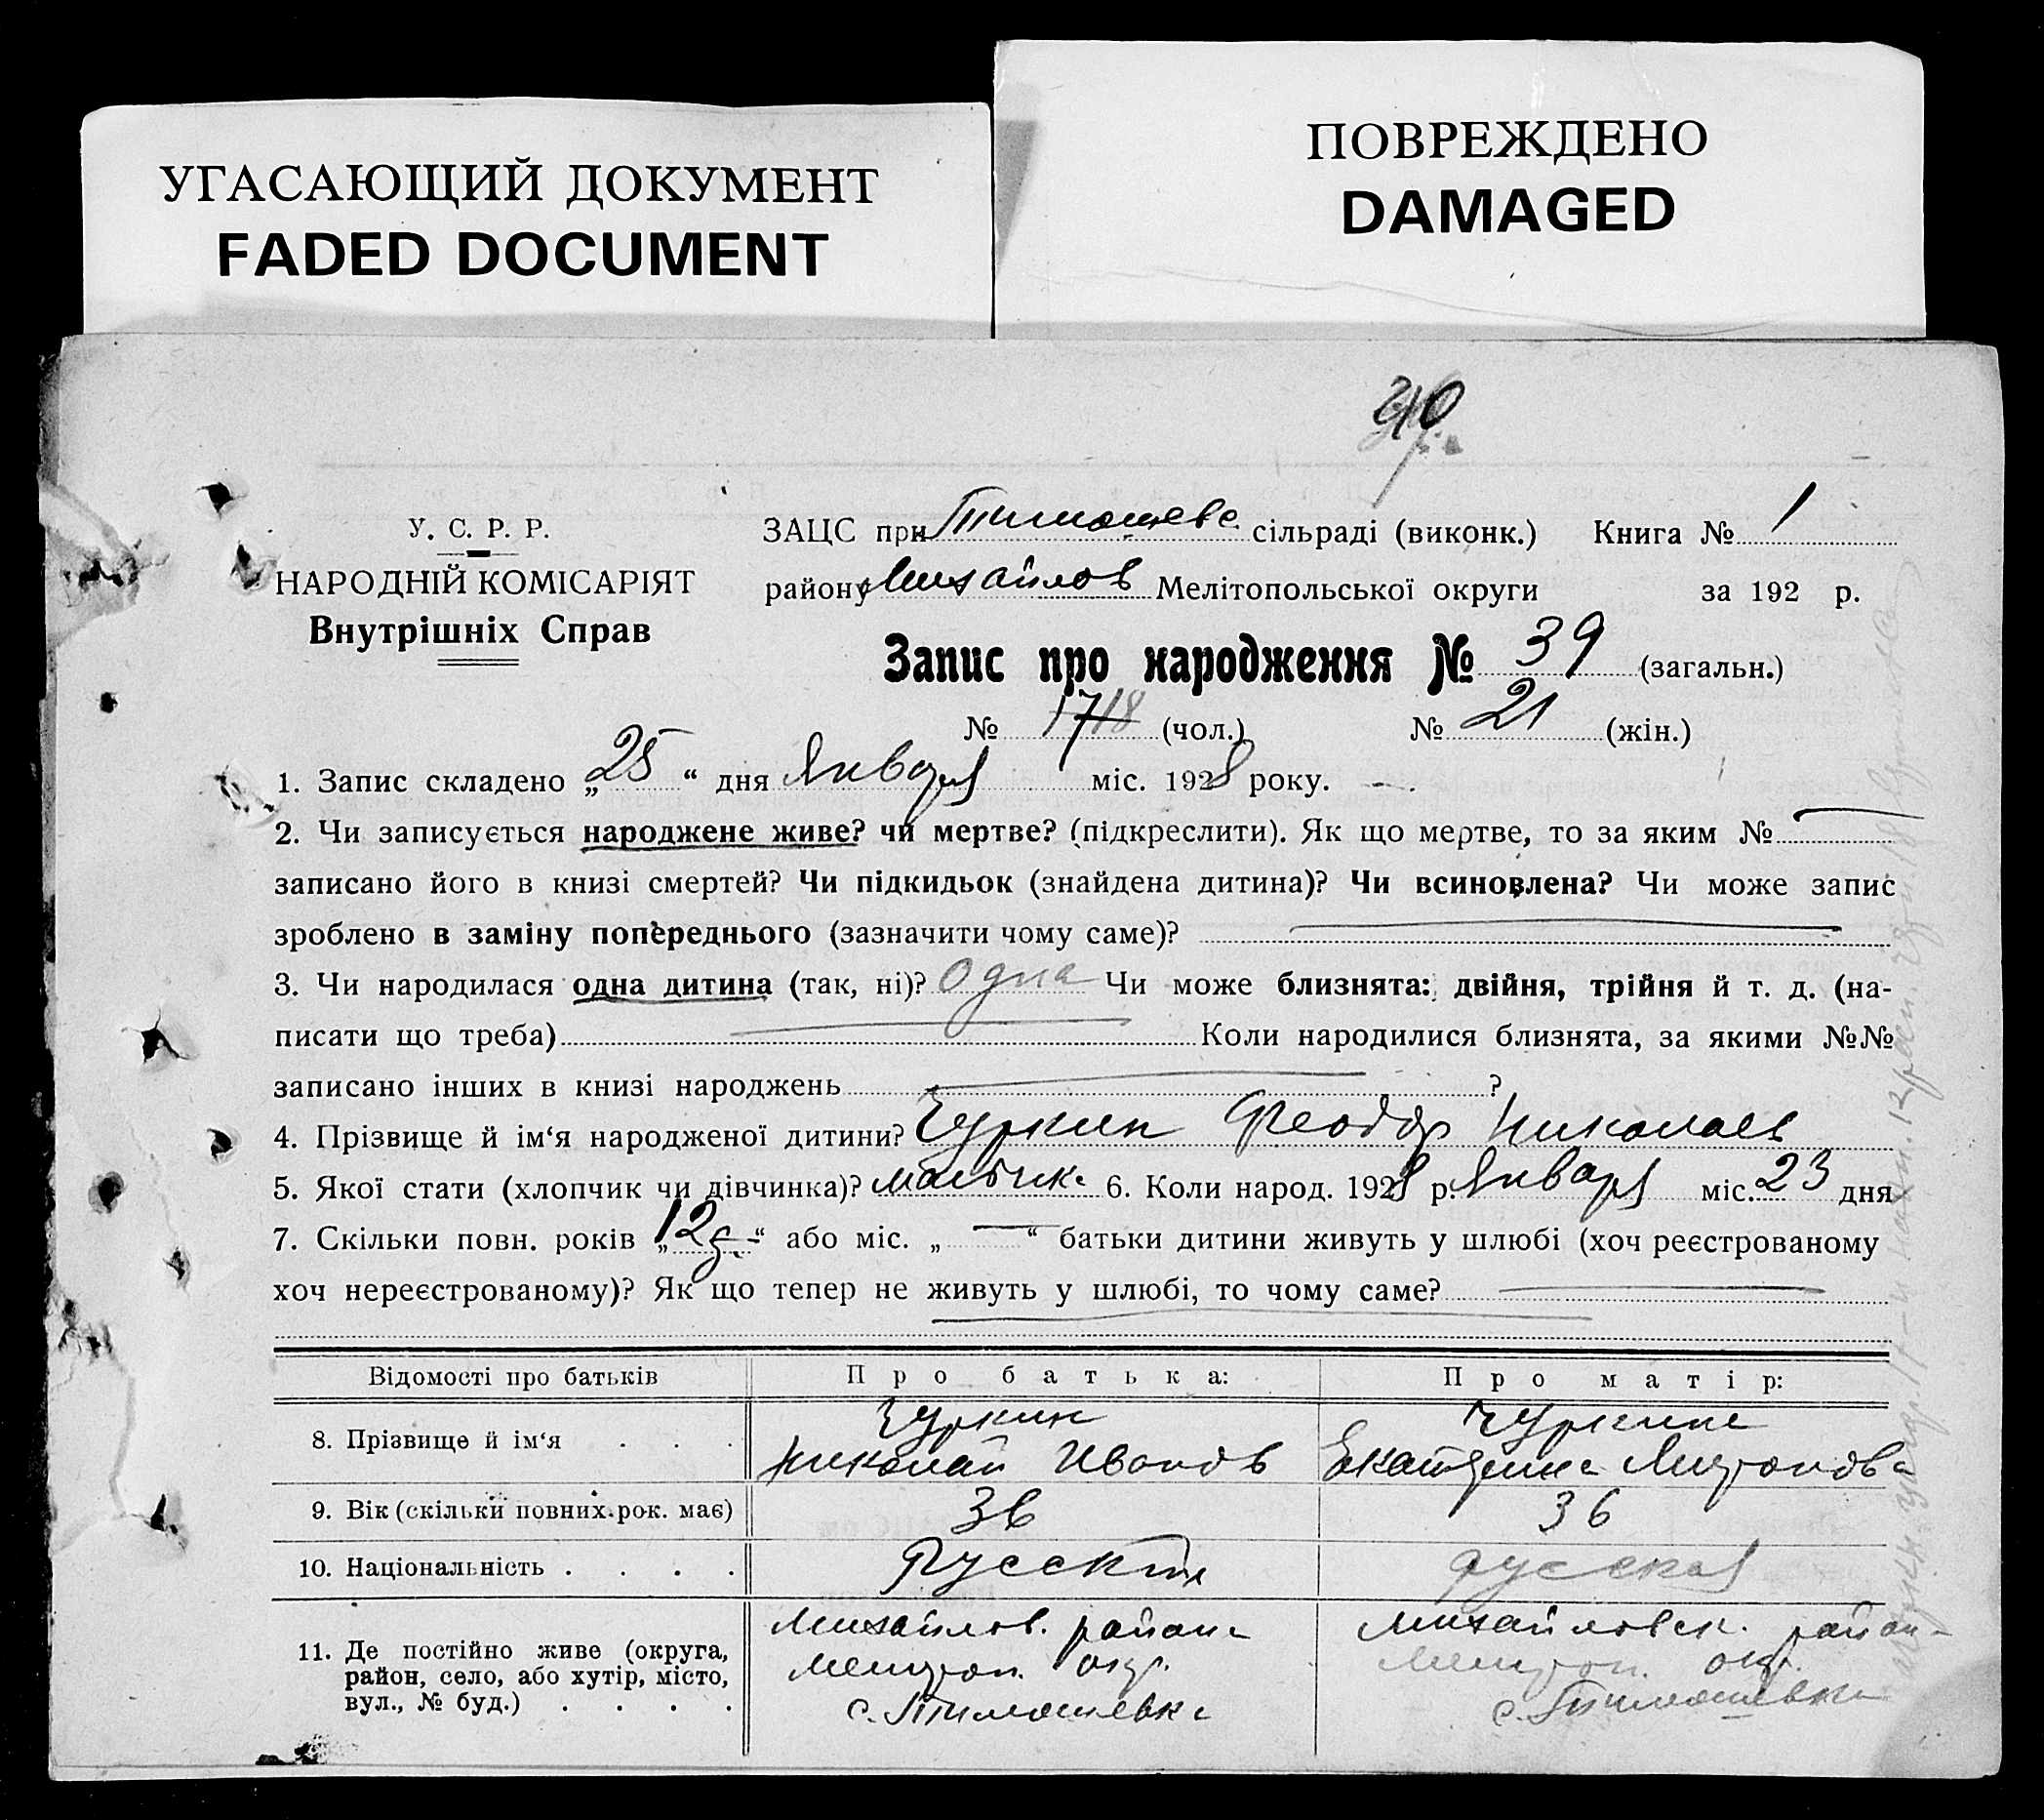 УГАСАЮЩИЙ ДОКУМЕНТ
FADED DOCUMENT
ПОВРЕЖДЕНО
DAMAGED
У. С. Р. Р.
НАРОДНІЙ КОМІСАРІЯТ
Внутрішніх Справ
ЗАЦС при Тимошевс. сільраді (виконк.) Книга № 1
району Михайлов Мелітопольської округи за 192 р.
Запис про народження № 39 (загальн.)
№ 17 18 (чол.) № 21 (жін.)
1. Запис складено „25“ дня Января міс. 1928 року.
2. Чи записується народжене живе? чи мертве? (підкреслити). Як що мертве, то за яким №
записано його в книзі смертей? Чи підкидьок (знайдена дитина)? Чи всиновлена? Чи може запис
зроблено в заміну попереднього (зазначити чому саме)?
3. Чи народилася одна дитина (так, ні)? Одна Чи може близнята: двійня, трійня й т. д. (на-
писати що треба) Коли народилися близнята, за якими №№
записано інших в книзі народжень ?
4. Прізвище й ім‘я народженої дитини? Чуркин Феодор Николаев
5. Якої стати (хлопчик чи дівчинка)? мальчик 6. Коли народ. 1928 р. Января міс. 23 дня
7. Скільки повн. років „12 г.“ або міс. „ — “ батьки дитини живуть у шлюбі (хоч реєстрованому
хоч нереєстрованому)? Як що тепер не живуть у шлюбі, то чому саме?
Відомості про батьків Про батька: Про матір:
8. Прізвище й ім‘я . . . Чуркин Чуркина
Николай Иванов Екатерина Миронова
9. Вік (скільки повних рок. має) 36 36
10. Національність . . . . Русский русская
11. Де постійно живе (округа, район, село, або хутір, місто, вул., № буд.) . . . .
Михайлов. района Михайловск. район
Мелитоп. окр. Мелитоп. окр.
с. Тимошевка с. Тимошевка